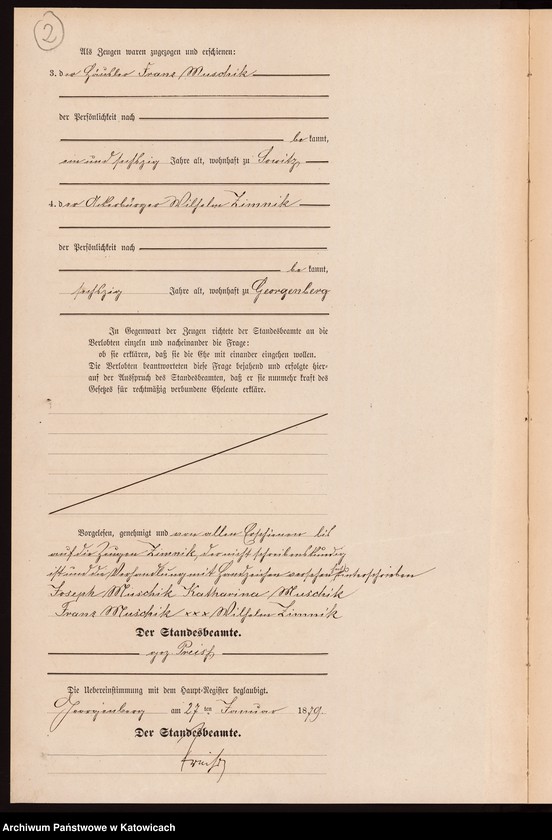 2
Als Zeugen waren zugezogen und erschienen:
3. der Häusler Franz Muschik
der Persönlichkeit nach
be kannt,
ein und sechszig Jahre alt, wohnhaft zu Sowitz
4. der Ackerbürger Wilhelm Zimnik
der Persönlichkeit nach
be kannt,
sechszig Jahre alt, wohnhaft zu Georgenberg
In Gegenwart der Zeugen richtete der Standesbeamte an die
Verlobten einzeln und nacheinander die Frage:
ob sie erklären, daß sie die Ehe mit einander eingehen wollen.
Die Verlobten beantworteten diese Frage bejahend und erfolgte hier-
auf der Ausspruch des Standesbeamten, daß er sie nunmehr kraft des
Gesetzes für rechtmäßig verbundene Eheleute erkläre.
Vorgelesen, genehmigt und von allen Erschienen bis
auf die Zeugen Zimnik, der nicht schreibenskundig
ist und die Verhandlung mit Handzeichen versehen hat unterschrieben
Joseph Muschik Katharina Muschik
Franz Muschik xxx Wilhelm Zimnik
Der Standesbeamte.
gez Preiß
Die Uebereinstimmung mit dem Haupt-Register beglaubigt.
Georgenberg am 27 ten Januar 1879.
Der Standesbeamte.
Preiß
Archiwum Państwowe w Katowicach